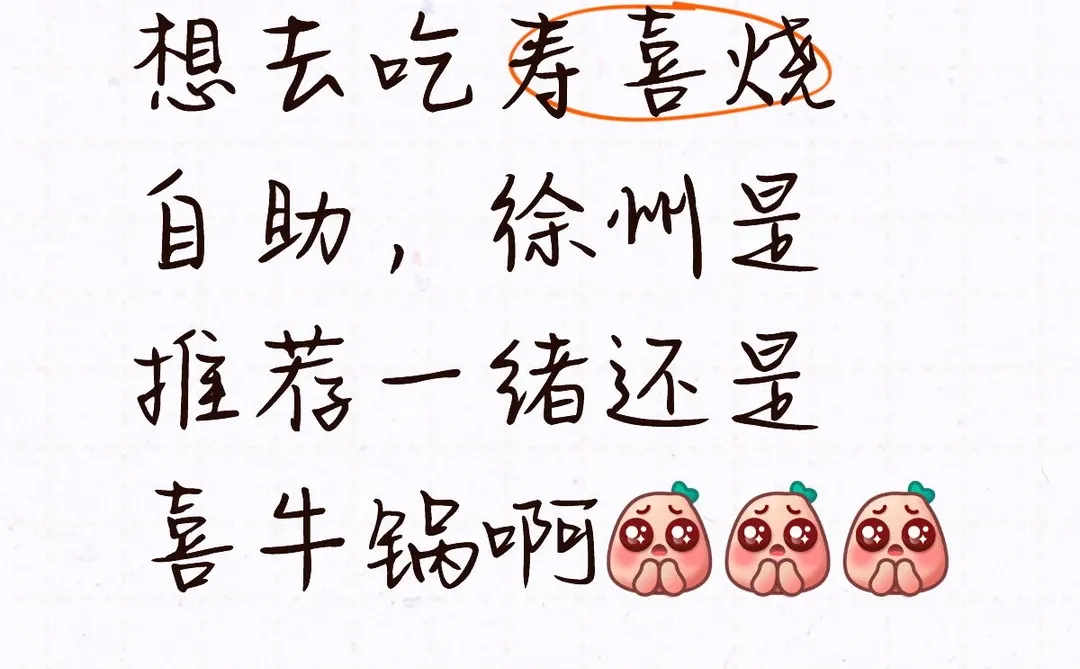 想去吃寿喜烧
自助，徐州是
推荐一绪还是
喜牛锅啊